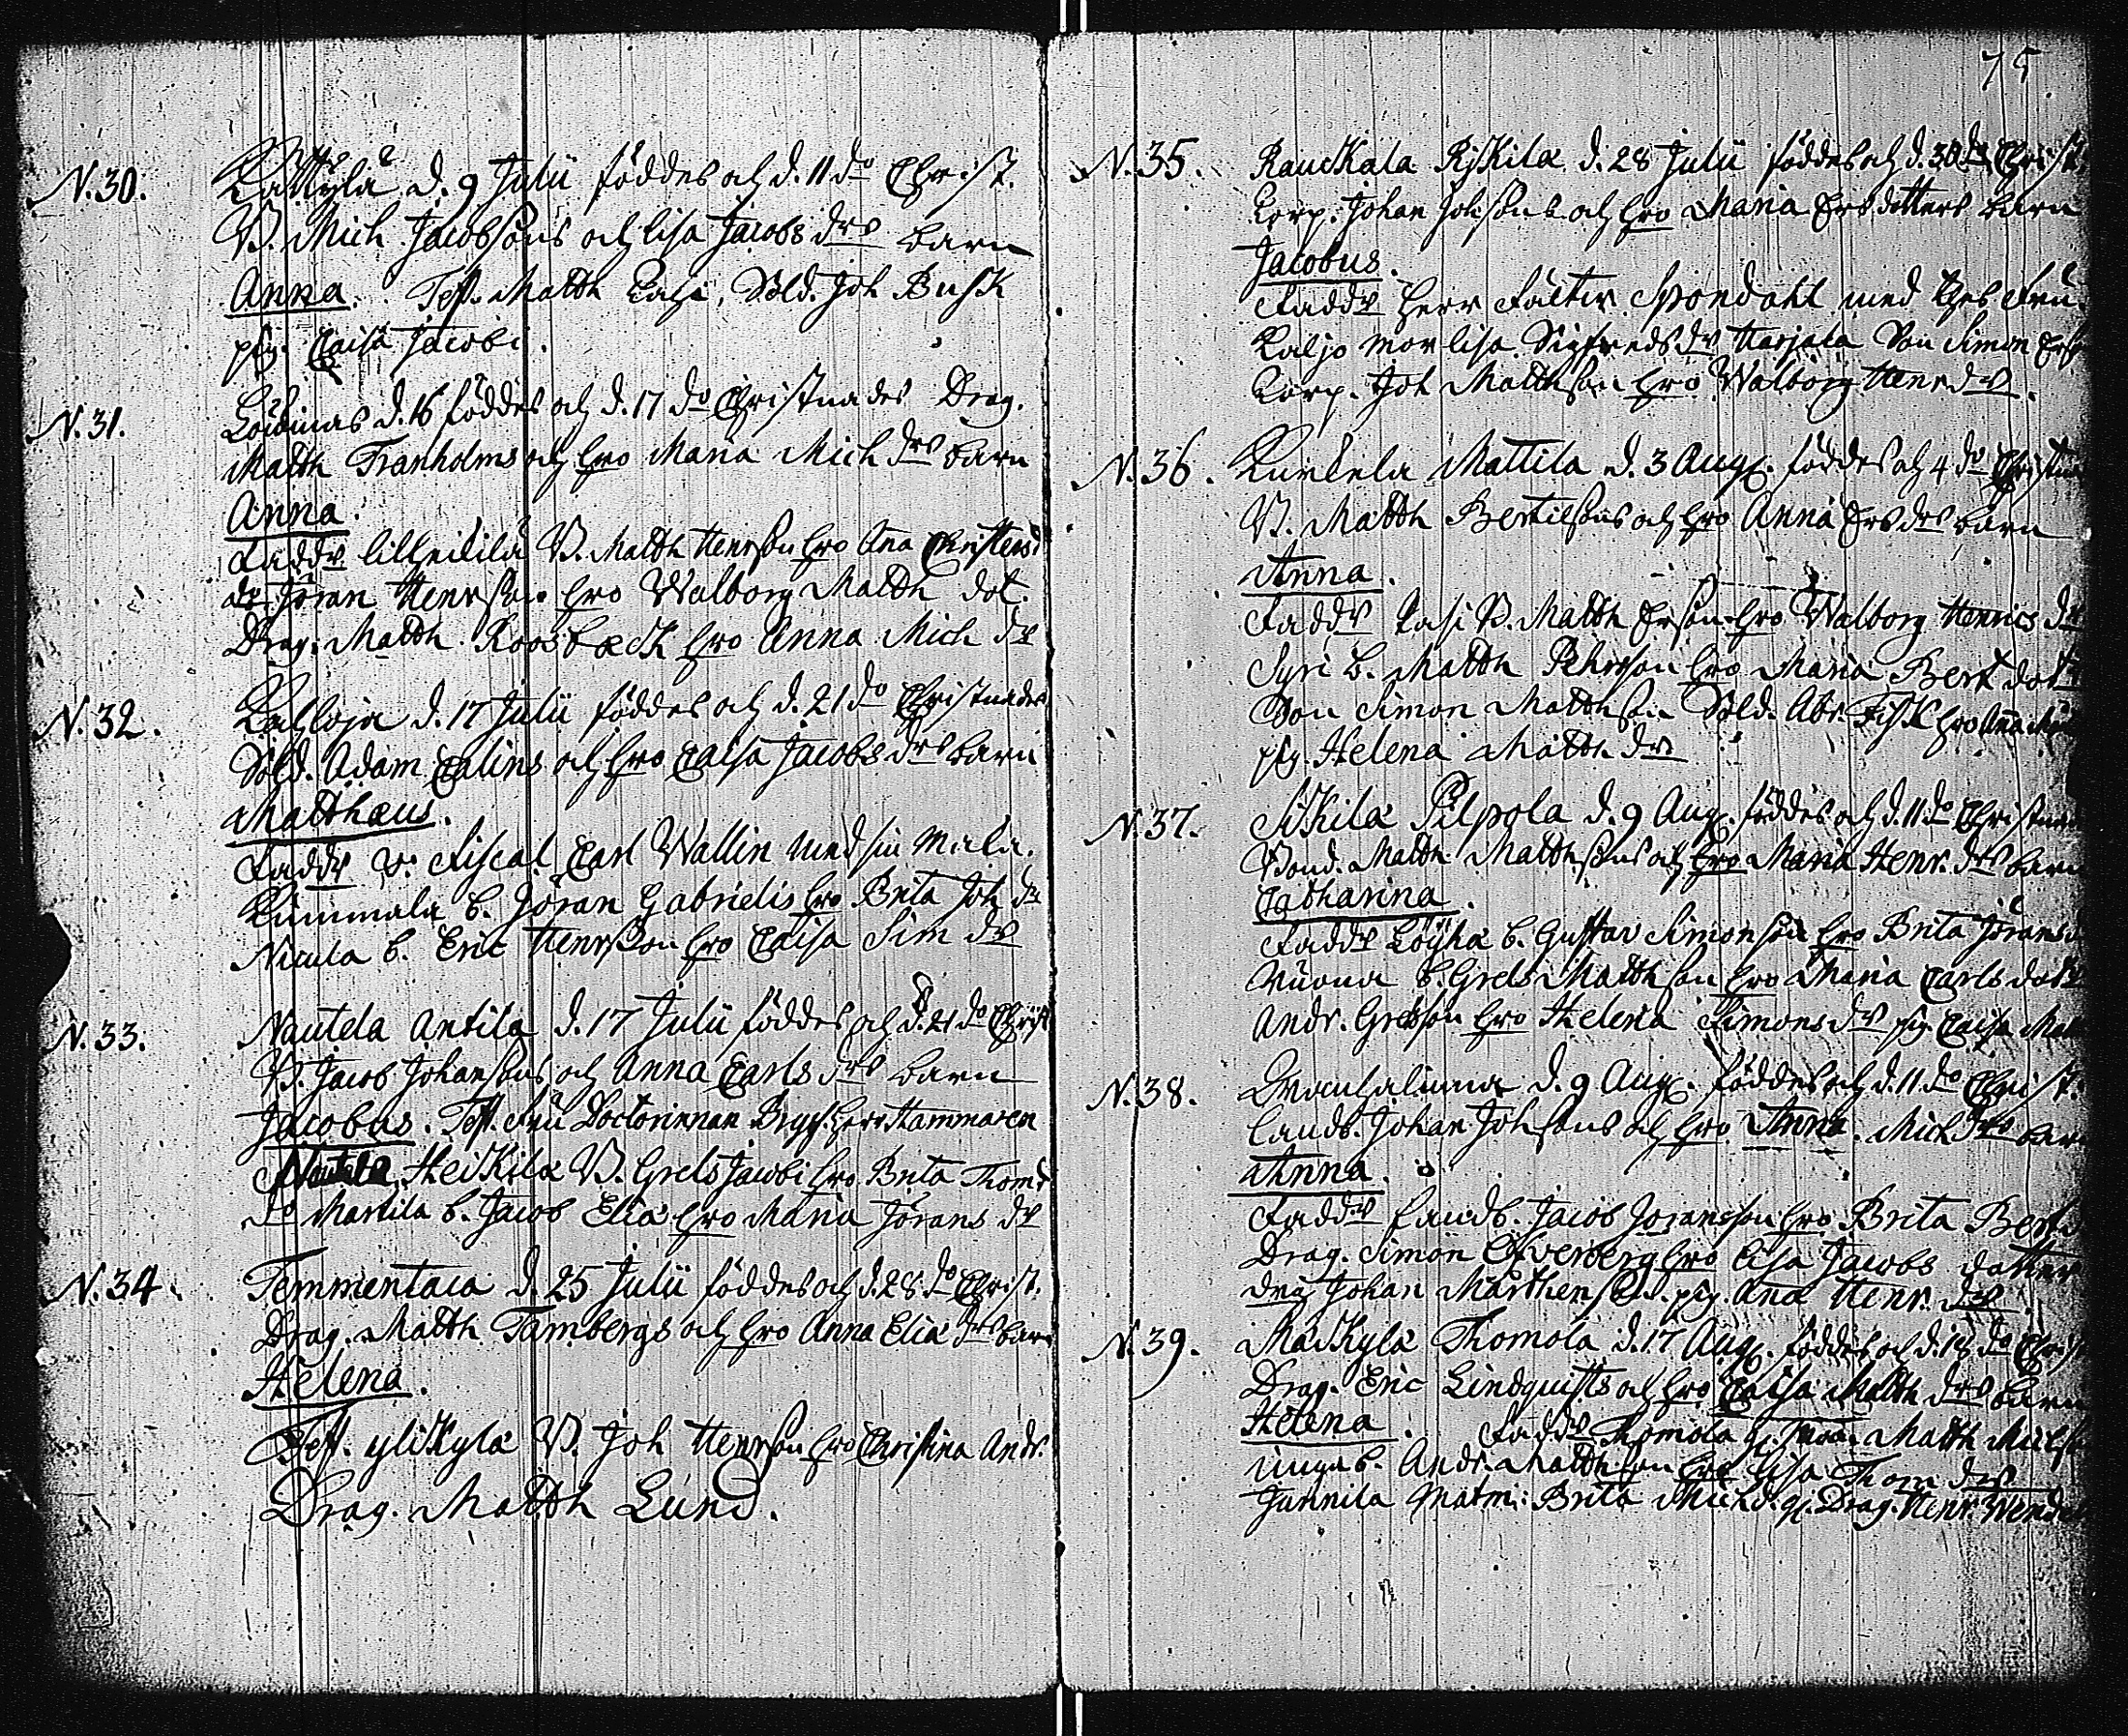 N. 30. Kättÿlä d. 9 Julii föddes och d. 11 do Christ.
B. Mich. Jacobsons och Lisa Jacobs drs barn
Anna. Test. Matth Sold. Joh Busk
pig. Caisa Jacobi.
N. 31. d. 16 föddes och d. 17 do Christnades Drag.
Matth Tranholms och hro Maria Mich drs barn
Anna.
Faddr B. Matth Henrson hro Ana Christersd
do Jöran Henrsson hro Walborg Matth dot.
Drag. Matth Roosbeck hro Anna Mich dr
N. 32. d. 17 Julii föddes och d. 21 do Christnades
Sold. Adam Calins och hro Caisa Jacobs drs barn
Matthæus.
Faddr v. Fiscal Carl Wallin med sin
b. Jöran Gabrielis hro Brita Joh dr
b. Eric Henrsson hro Caisa Sim dr
N. 33. Nautela Antila d. 17 Julii föddes och d. 21 do Christ
B. Jacob Johansons och Anna Carls drs barn
Jacobus. Test. Fru Doctorinnan Herr Hammaren
Heikilä B. Grels Jacobi hro Brita Thomd
do Martila b. Jacob Eliæ hro Maria Jörans dr
N. 34. Temmentaca d. 25 Julii föddes och d. 28 do Christ.
Drag. Matth Tambergs och hro Anna Eliæ drs barn
Helena.
Test. ylikylä B. Joh Henrson hro Christina Andr.
Drag. Matth Lund.
75
N. 35. Rauckala d. 28 Julii föddes och d. 30 do Christ.
Corp. Johan Johsons och hro Maria Ersdotters barn
Jacobus.
Faddr Herr Spondahl med Fru
mor Lisa Sigfreds dr Harjala Son Simon
Corp. Joh Matthson hro Walborg Henr dr.
N. 36. Kurkela Mattila d. 3 Aug. föddes och 4 do
B. Matth Bertilsons och hro Anna Ers drs barn
Anna.
Faddr B. Matth Erson hro Walborg Henrics dr
b. Matth Pehrsson hro Maria Bert dotr
Son Simon Matthson Sold. Abr. Fisk hro
pig. Helena Matth dr
N. 37. Pilpola d. 9 Aug. föddes och d. 11 do
Bond. Matth Matthsons och hro Maria Henr. drs barn
Catharina.
Faddr b. Gustav Simonson hro Brita Jörans
b. Grels Matthson hro Maria Carls dotr
Andr. Grelsson hro Helena Simons dr pig. Caisa
N. 38. d. 9 Aug. föddes och d. 11 do Christ.
Landb. Johan Johsons och hro Anna Mich drs barn
Anna.
Faddr Landb. Jacob Joransson hro Brita
Drag. Simon Öfverberg hro Lisa Jacobs dotter
Drag Johan pig. Ana Henr. dr.
N. 39. Mäckylä Thomola d. 17 Aug. föddes och d. do
Drag. Eric Lindquists och hro Caisa Matth drs barn
Helena. Faddr Thomola Matth
b. Andr. Matthson hro Lisa Thom dr
Junnila Brita Michd. Drag. Henr.